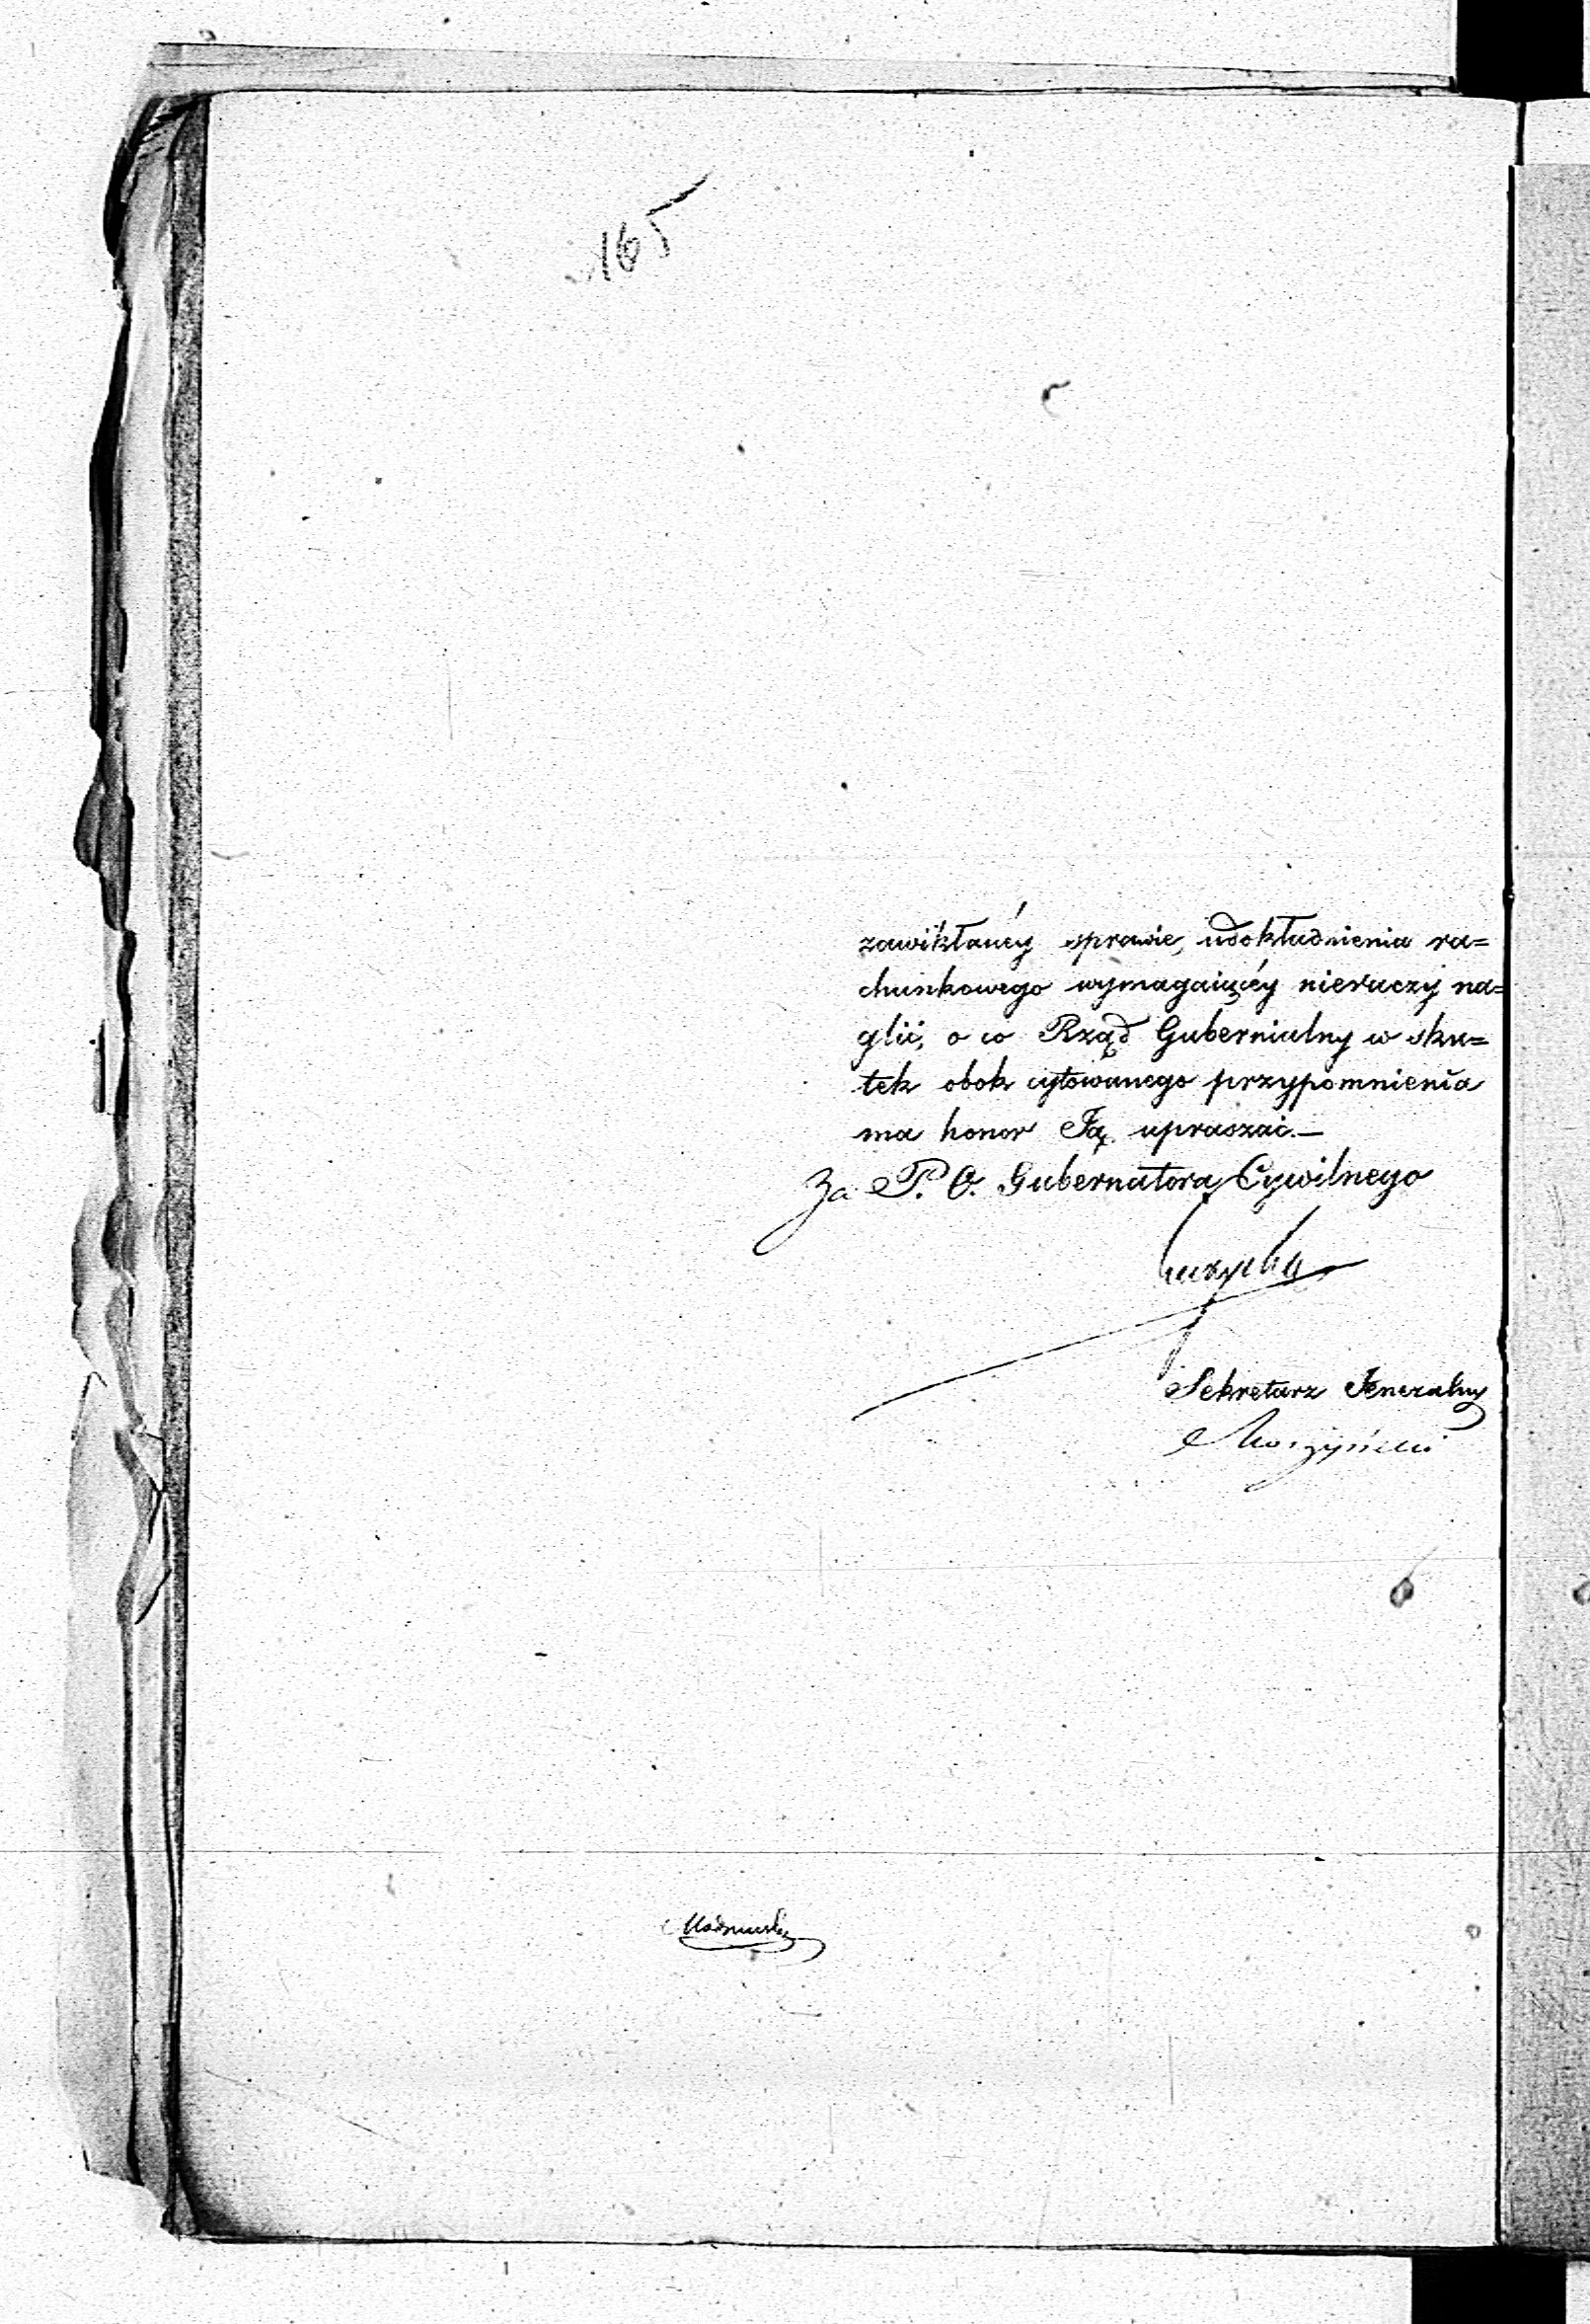 165
zawikłanéy sprawie, udokładnienia ra=
chunkowego wymagaiącéy nieraczyj na=
glić, o co Rząd Gubernialny w sku=
tek obok cytowanego przypomnienia
ma honor Ją upraszać.—
Za P. O. Gubernatora Cywilnego
Sekretarz Jeneralny